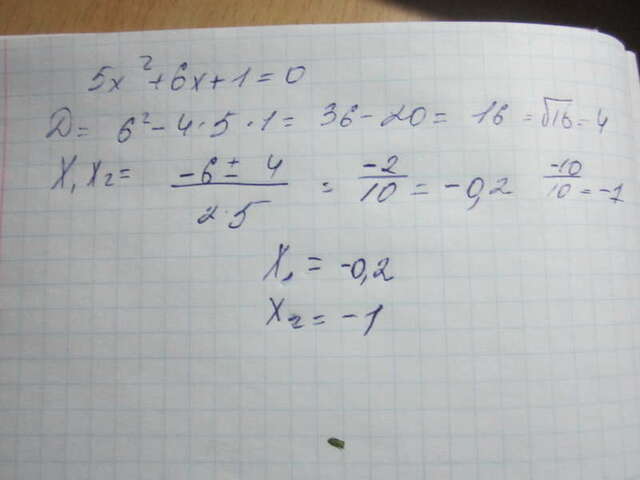 5x²+6x+1=0
D= 6²-4·5·1= 36-20= 16 =√16=4
X₁X₂= (-6±4)/(2·5) = -2/10 = -0,2 -10/10 = -1
X₁ = -0,2
X₂ = -1